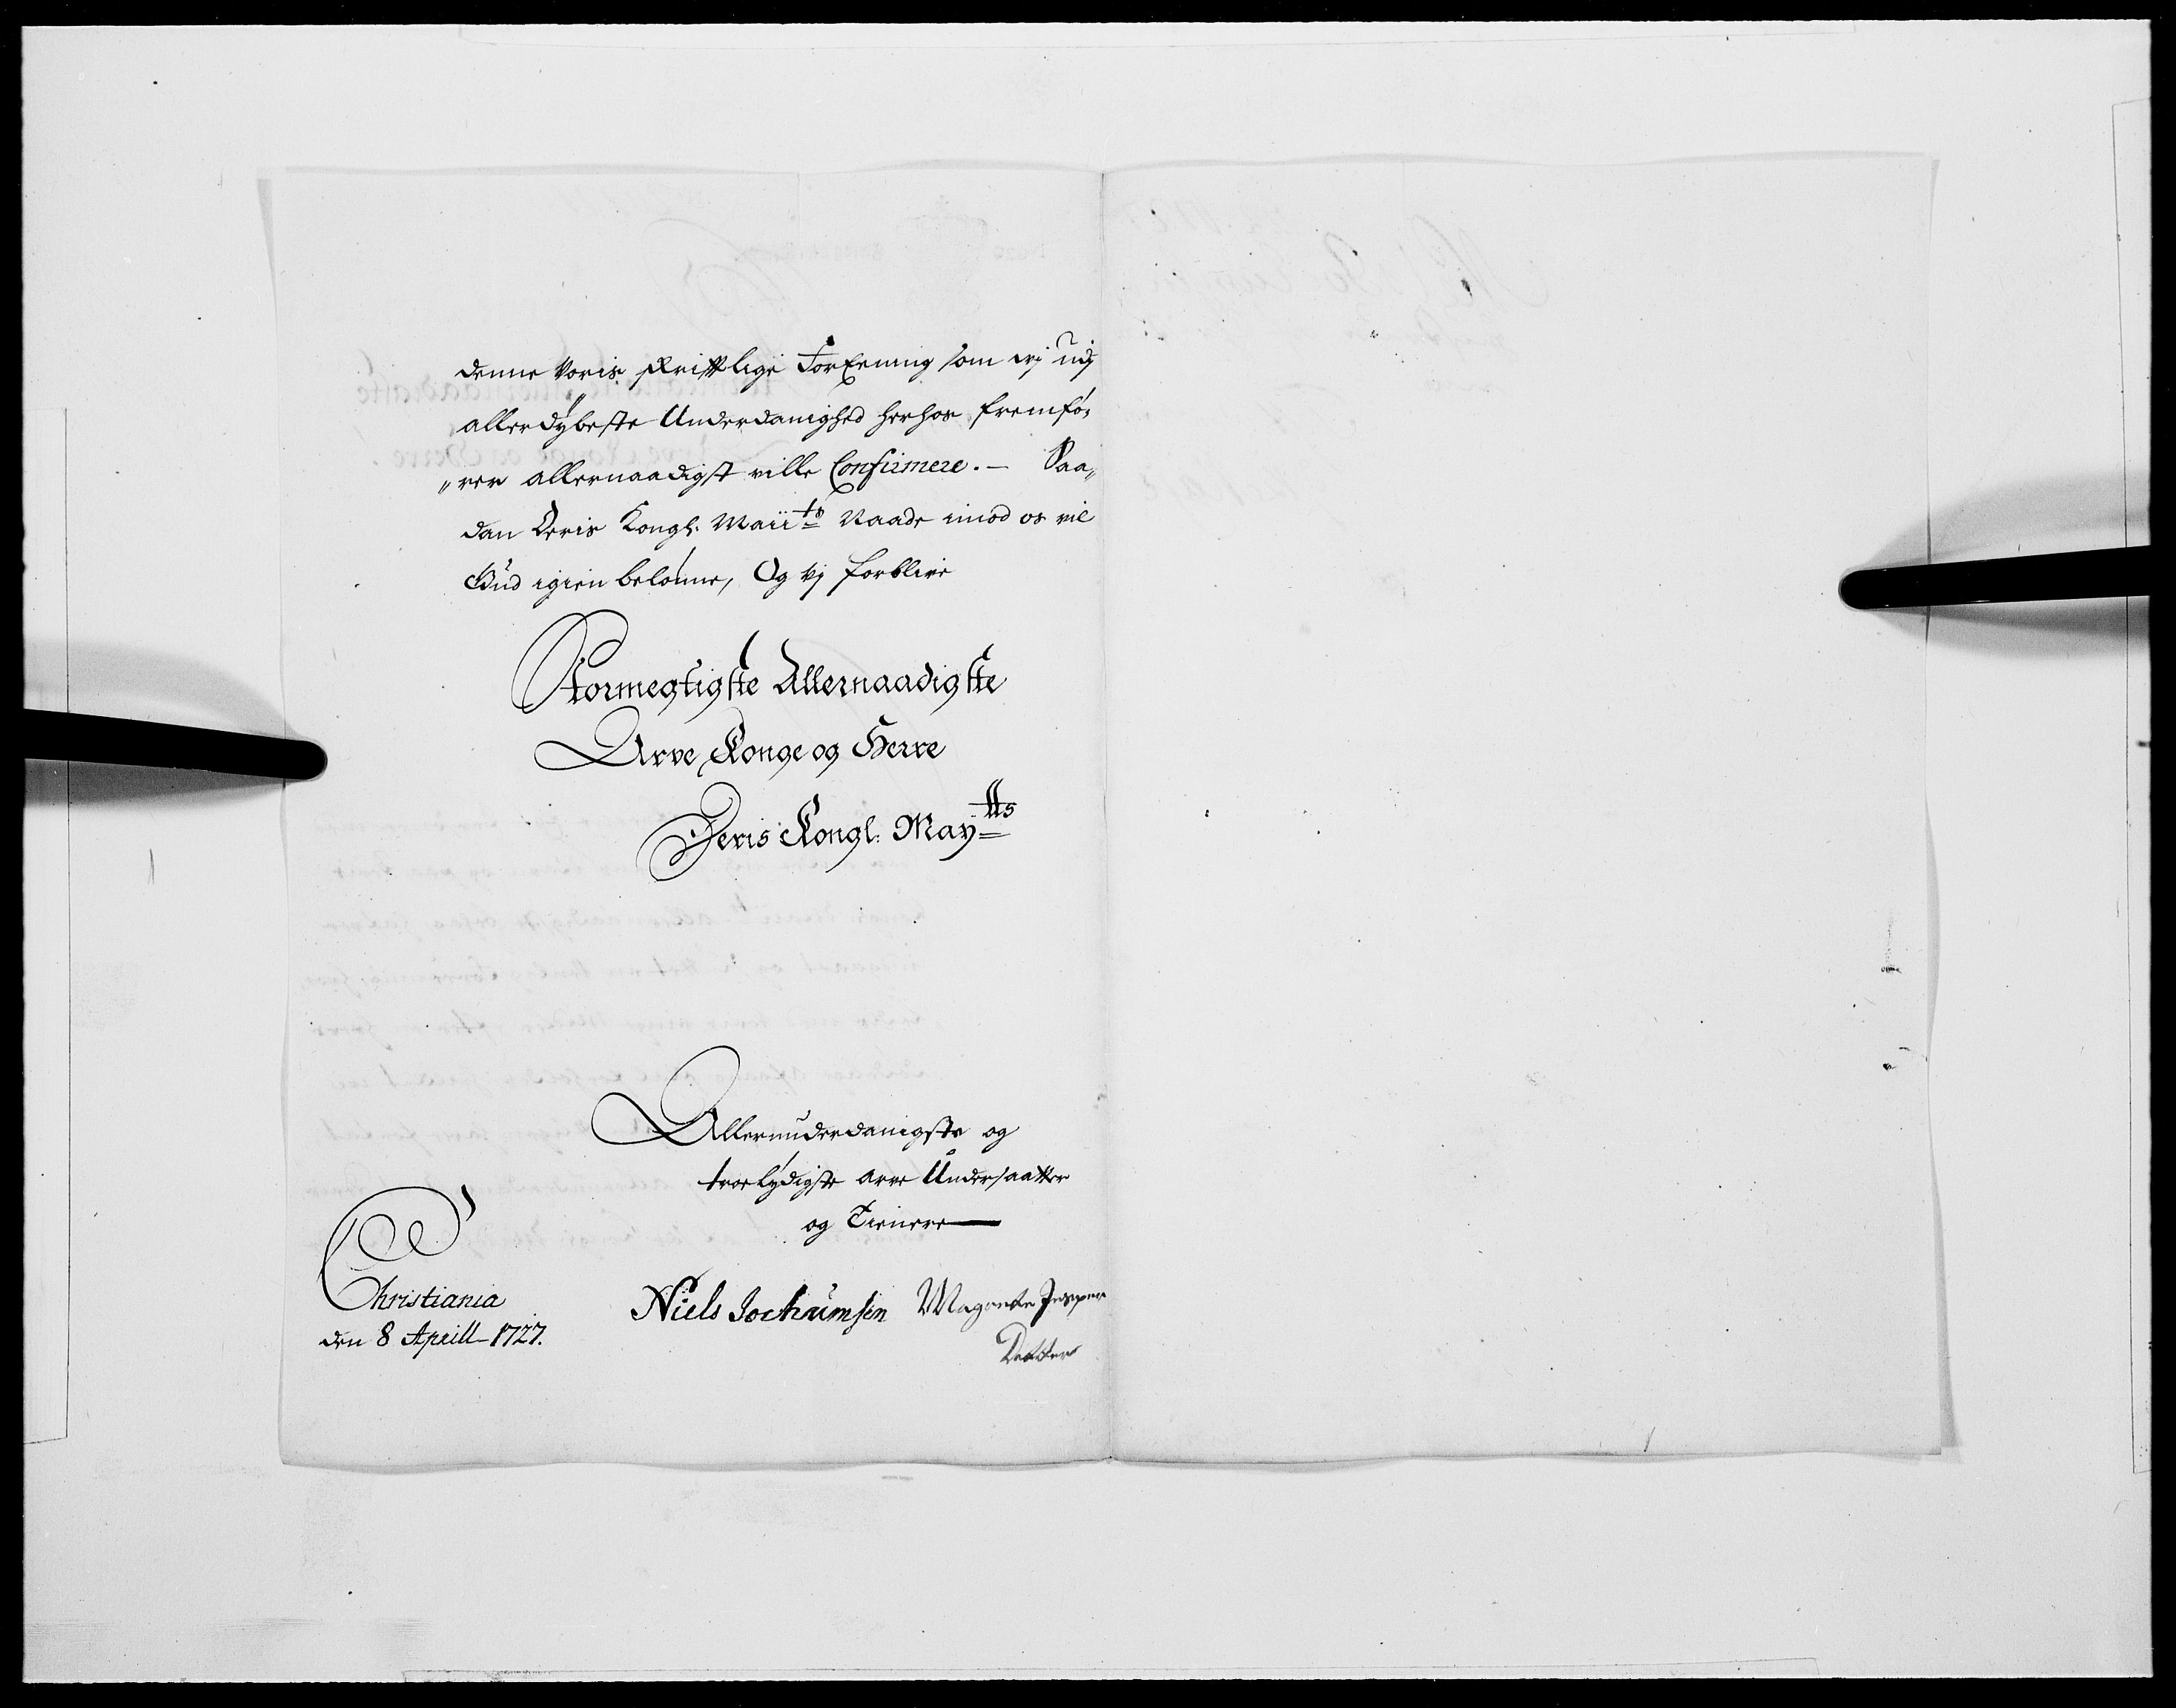 denne Voris skrifftlige ForEening som vj udj
allerdÿbeste Underdanighed herhos fremfö,
„rer allernaadigst ville Confirmere. — Saa„
dan Deris Kongl: Maiits Naade imod os vil
Gud igien belönne, Og Vj forblive
Stormegtigste Allernaadigste
Arve Konge og Herre
Deris Kongl: Maytts
Allerunderdanigste og
troelÿdigste arve Undersaatter
og Tienere
Christiania
den 8 Aprill 1727.
Niels Jochumsen Magrete Jesper
Datter